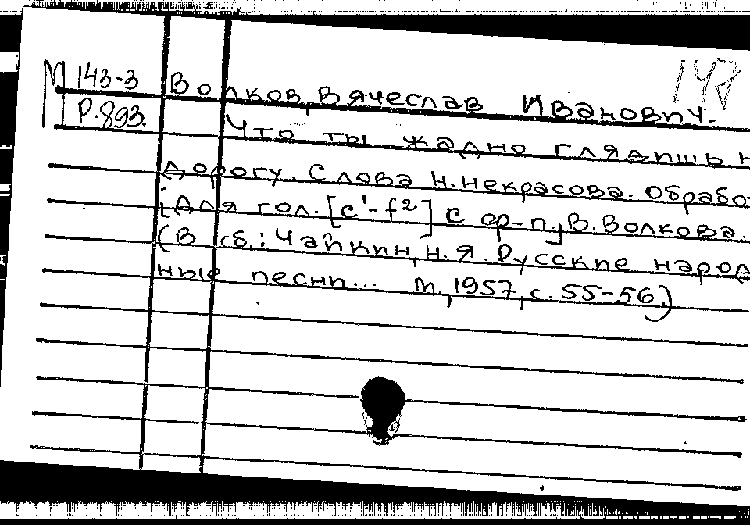 М 143-3 Волков, Вячеслав Иванович.
Р.893. Что ты жадно глядишь н
дорогу. Слова Н.Некрасова. Обрабо
[для гол. [c¹-f²] с ф-п.] В.Волкова.
(В сб.: Чайкин, Н.Я. Русские народ
ные песни... М., 1957, с. 55-56)